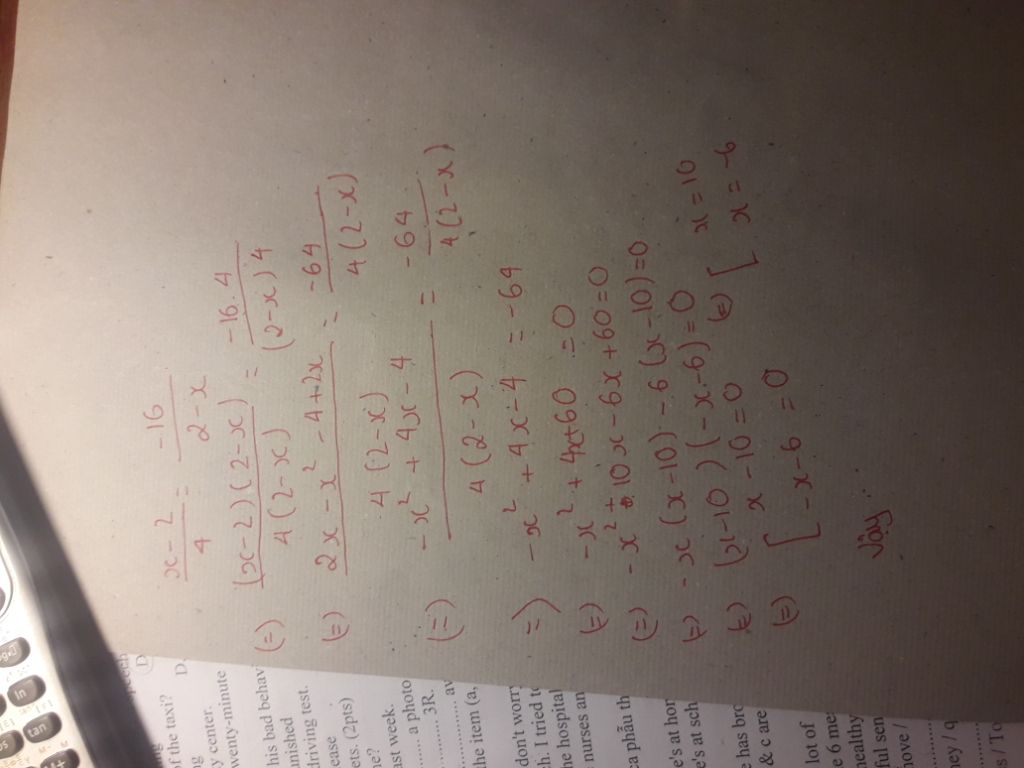 x-2/4 = -16/2-x
(=) (x-2)(2-x)/4(2-x) = -16.4/(2-x)4
(=) 2x-x²-4+2x/4(2-x) = -64/4(2-x)
(=) -x²+4x-4/4(2-x) = -64/4(2-x)
=) -x²+4x-4 = -64
(=) -x²+4x+60 = 0
(=) -x²+10x-6x+60=0
(=) -x(x-10)-6(x-10)=0
(=) (x-10)(-x-6)=0
(=) [ x-10=0 (=) [ x=10
-x-6=0 x=-6
Vậy
D
of the taxi? D.
y center.
twenty-minute
his bad behav
driving test.
ets. (2pts)
ast week.
a photo
3R.
the item (a,
don't worry
h. I tried to
he hospital
nurses an
ca phẫu th
e's at hom
e's at sch
e has bro
& c are
lot of
e 6 me
healthy
ful sen
nove /
ney / q
s / To
ln
tan
M-
M+